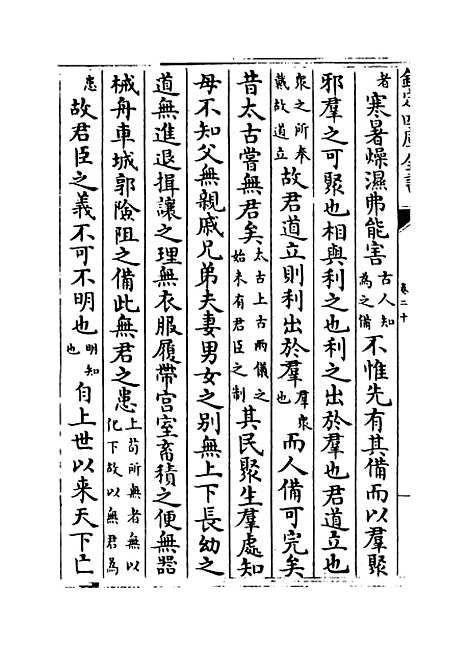 欽定四庫全書 卷二十
者寒暑燥濕弗能害古人知為之備不惟先有其備而以羣聚
邪羣之可聚也相與利之也利之出於羣也君道立也
衆之所奉戴故道立故君道立則利出於羣羣衆也而人備可完矣
昔太古嘗無君矣太古上古兩儀之始未有君臣之制其民聚生羣處知
母不知父無親戚兄弟夫妻男女之別無上下長幼之
道無進退揖讓之理無衣服履帶宮室畜積之便無器
械舟車城郭險阻之備此無君之患上苟所無者無以化下故以無君為
患故君臣之義不可不明也明知也自上世以来天下亡